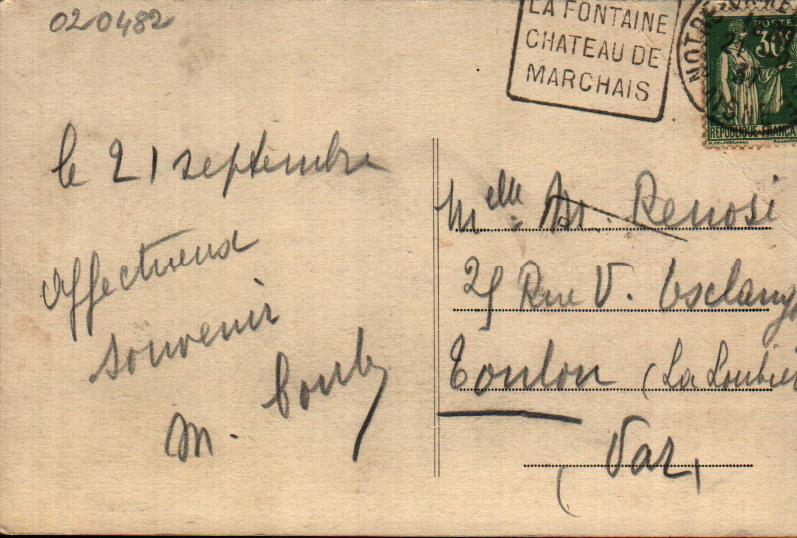 020482
LA FONTAINE
CHATEAU DE
MARCHAIS
NOTRE
POSTE
30
REPUBLIQUE FRANCA
le 21 septembre
affectueux
souvenir
M.
Melle M. Renosi
Rue V. Esclang
Toulon (La Loubiè
(Var)